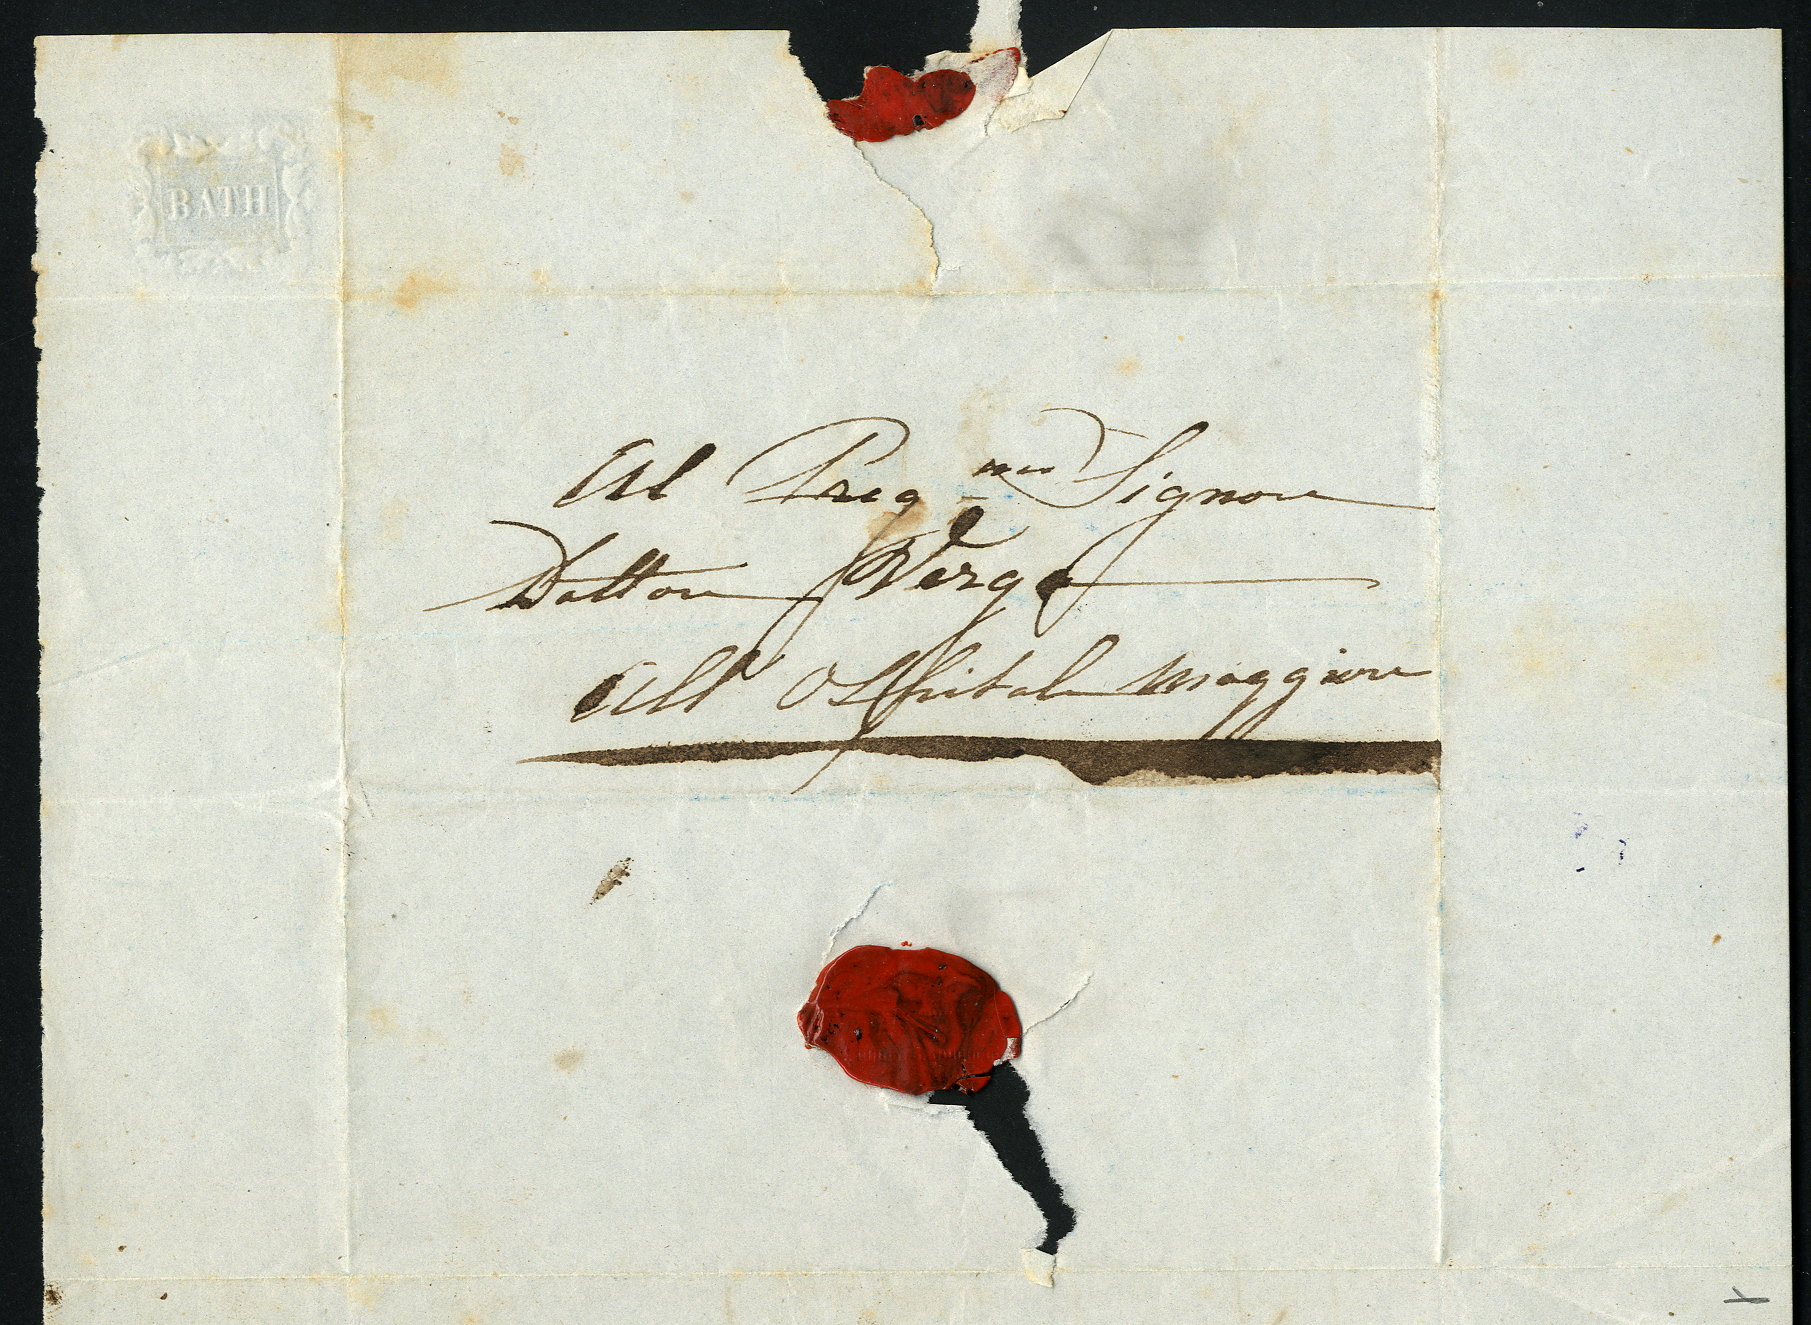 BATH
Al Preg.mo Signore
Dottore Verga
All' Ospitale Maggiore